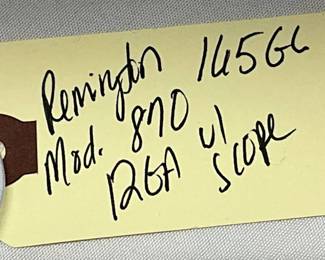 Remington 165GG
Mod. 870
12GA w/
SCOPE